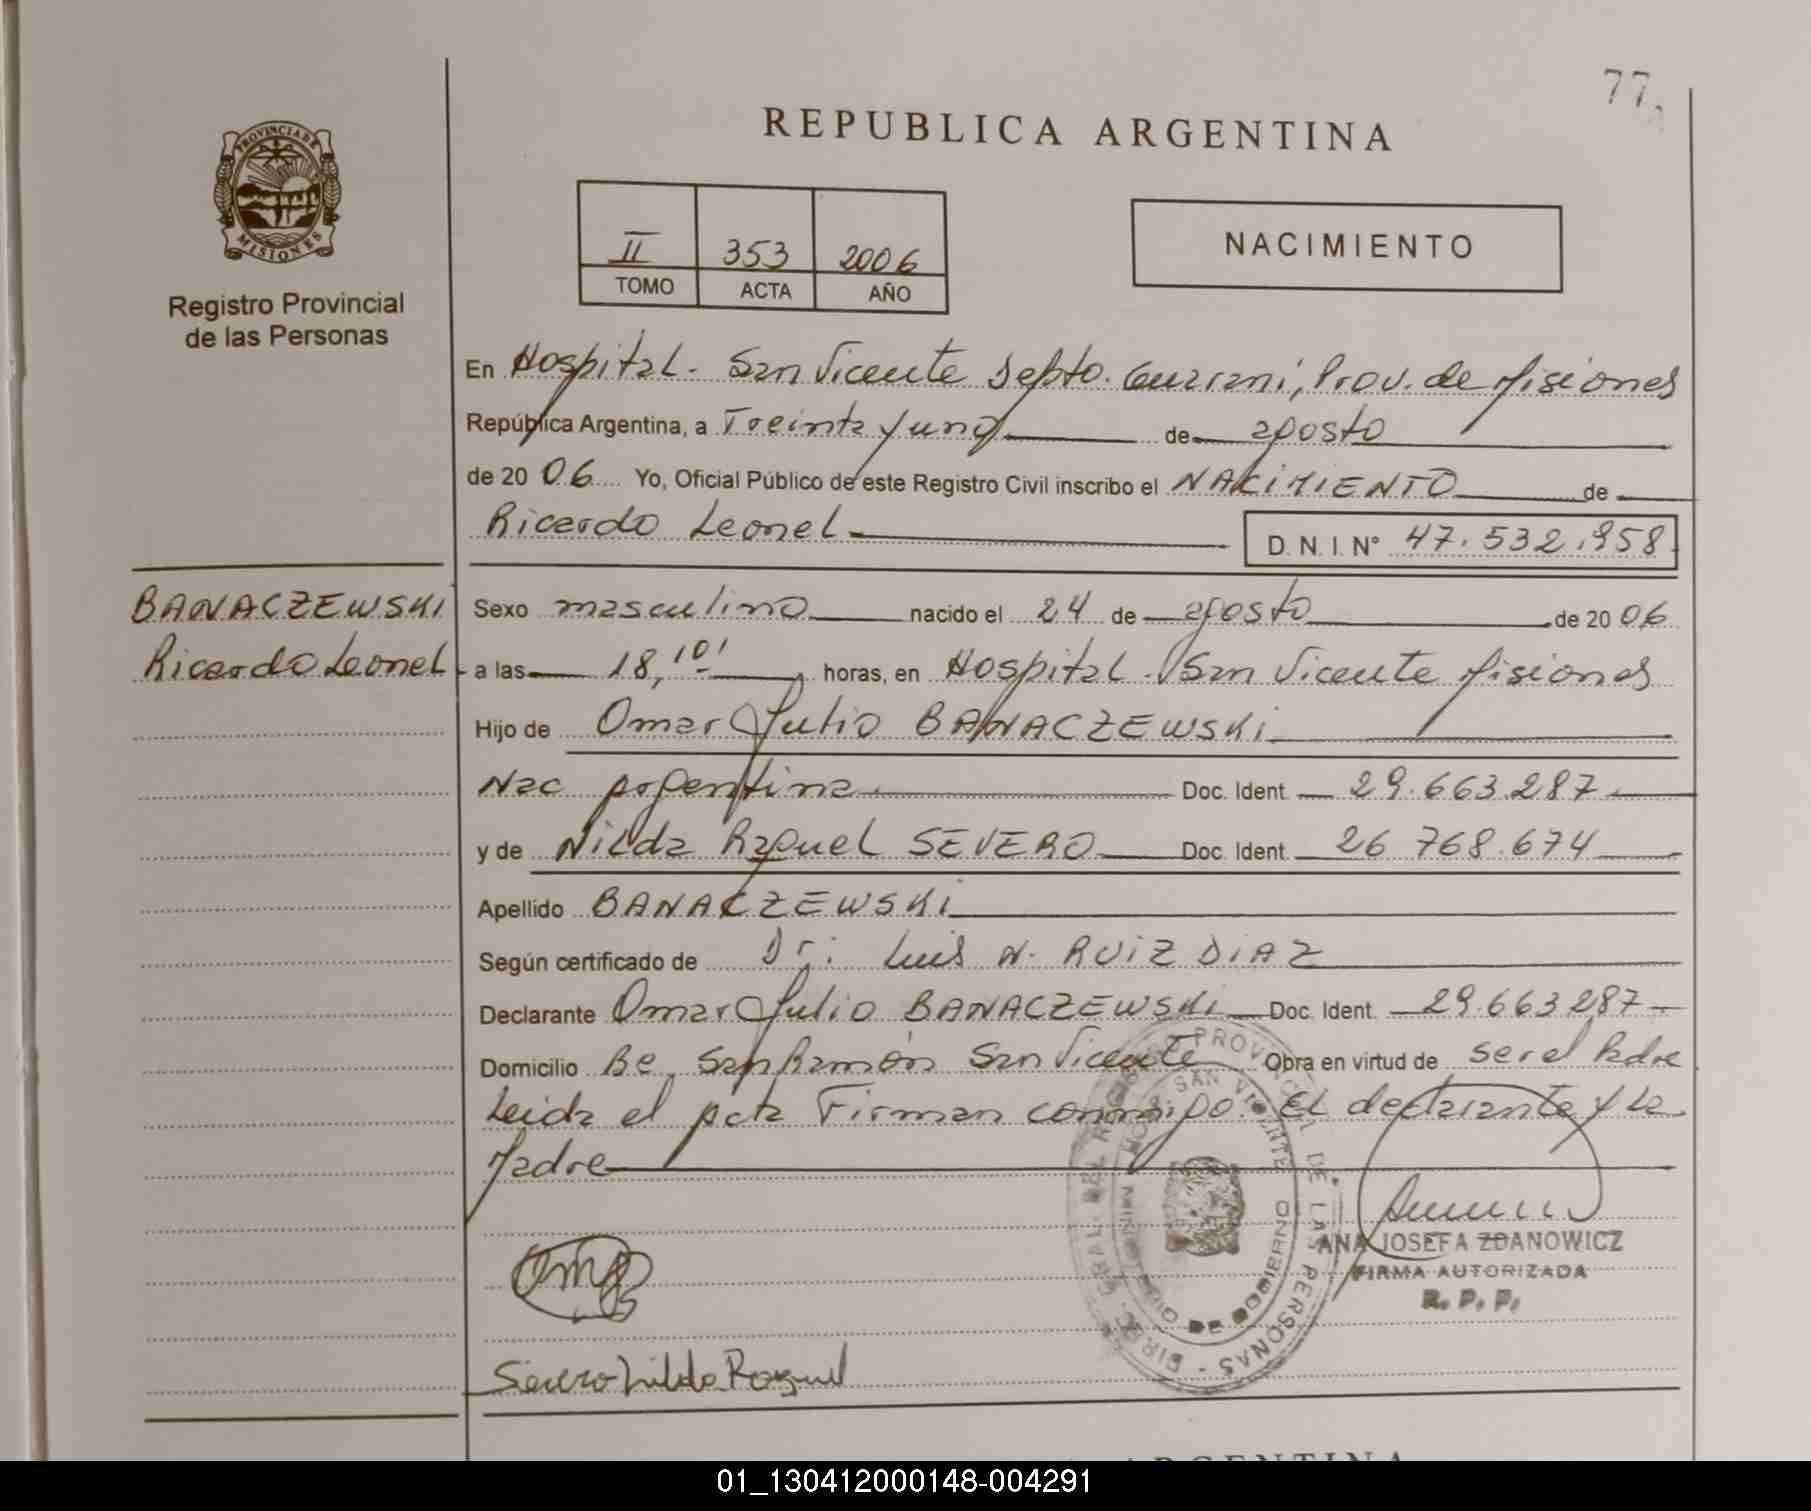 77
REPUBLICA ARGENTINA
PROVINCIA DE
MISIONES
Registro Provincial
de las Personas
II 353 2006
TOMO ACTA AÑO
NACIMIENTO
En Hospital. San Vicente Depto. Guarani, Prov. de Misiones
República Argentina, a Treinta y uno de agosto
de 20 06 Yo, Oficial Público de este Registro Civil inscribo el NACIMIENTO de
Ricardo Leonel D.N.I. Nº 47.532.958
BANACZEWSKI
Ricardo Leonel
Sexo masculino nacido el 24 de agosto de 20 06
a las 18,10' horas, en Hospital. San Vicente Misiones
Hijo de Omar Julio BANACZEWSKI
Nac argentina Doc. Ident. 29.663.287
y de Nilda Raquel SEVERO Doc. Ident. 26 768.674
Apellido BANACZEWSKI
Según certificado de Dr. Luis N. RUIZ DIAZ
Declarante Omar Julio BANACZEWSKI Doc. Ident. 29.663.287
Domicilio Be. San Ramón San Vicente Obra en virtud de ser el Padre
Leida el acta Firman conmigo. El declarante y la
Madre
ANA JOSEFA ZDANOWICZ
FIRMA AUTORIZADA
R. P. P.
Severo Nilda Raquel
ARGENTINA
01_130412000148-004291